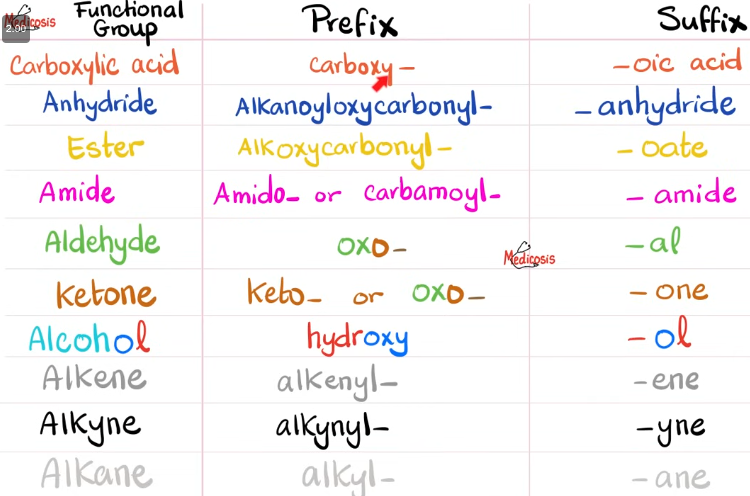 Medicosis
2.00
Functional Group Prefix Suffix
Carboxylic acid carboxy- -oic acid
Anhydride Alkanoyloxycarbonyl- -anhydride
Ester Alkoxycarbonyl- -oate
Amide Amido- or carbamoyl- -amide
Aldehyde oxo- -al
Medicosis
Ketone keto- or oxo- -one
Alcohol hydroxy -ol
Alkene alkenyl- -ene
Alkyne alkynyl- -yne
Alkane alkyl- -ane